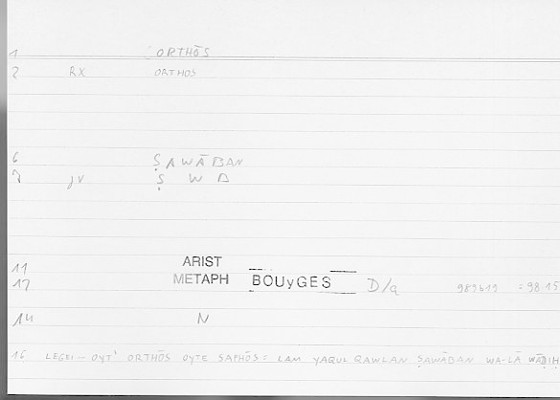 1 ORTHŌS
2 RX ORTHOS
6 ṢAWĀBAN
7 jV Ṣ W B
11 ARIST
12 METAPH BOUyGES D/a 989b19 = 98.15
14 N
16 LEGEI... OYT' ORTHŌS OYTE SAPHŌS = LAM YAQUL QAWLAN ṢAWĀBAN WA-LĀ WĀḌIḤ